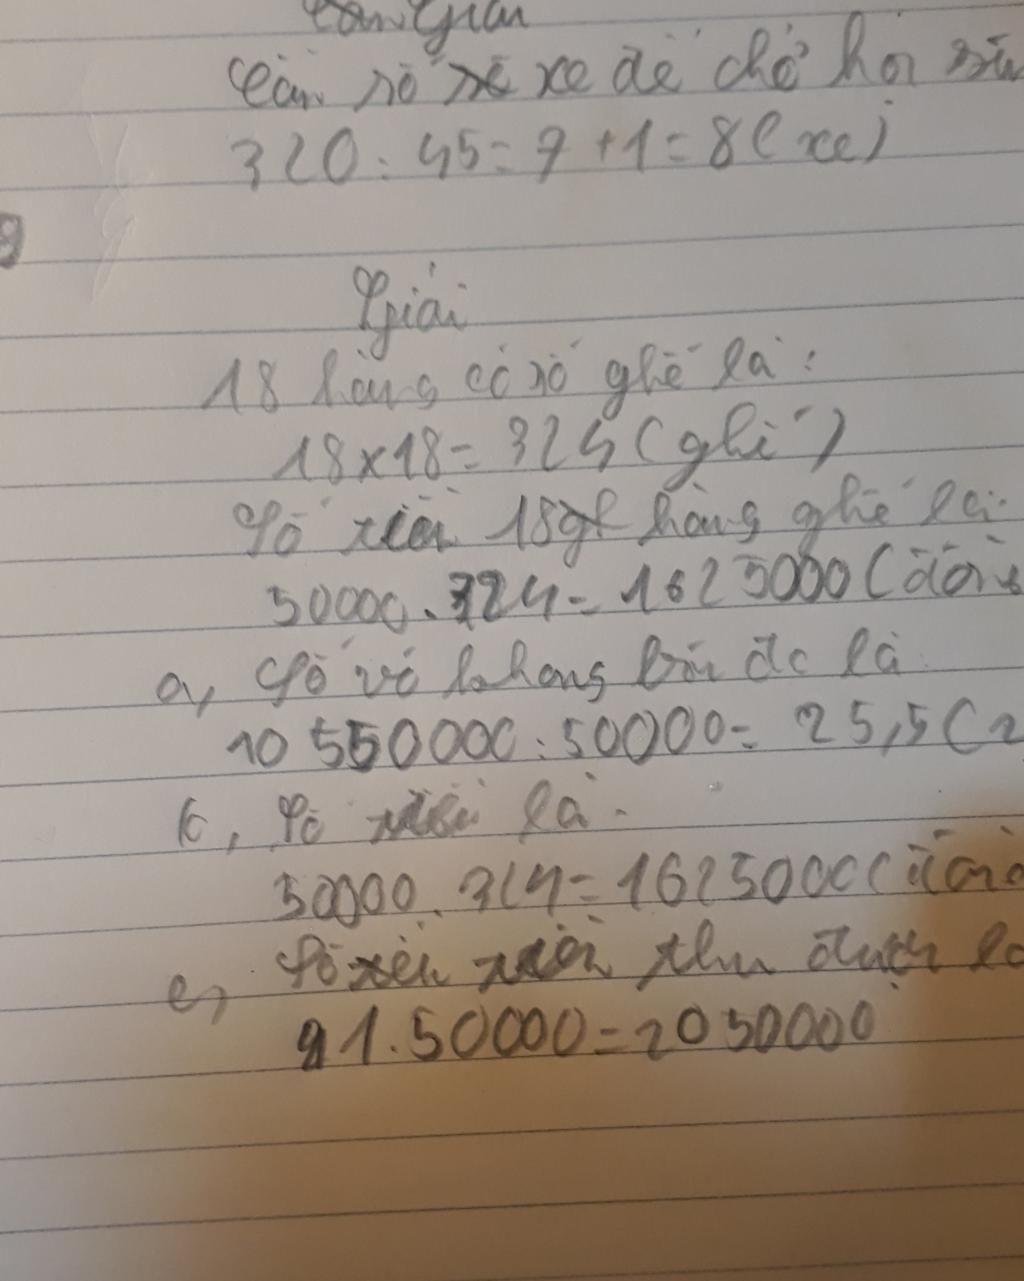 Cần số xe để chở hời
320 : 45 = 7 + 1 = 8 ( xe )
Giải
18 hàng có số ghế là :
18 x 18 = 324 ( ghế )
Số tiền 18 hàng ghế là
50000 . 324 = 1625000 ( đồng
a, Số vé không bán đc là
10 550000 : 50000 = 25,5 (
Số là
50000 . 324 = 1625000 (
c, Số tiền thu được
41 . 50000 = 2050000